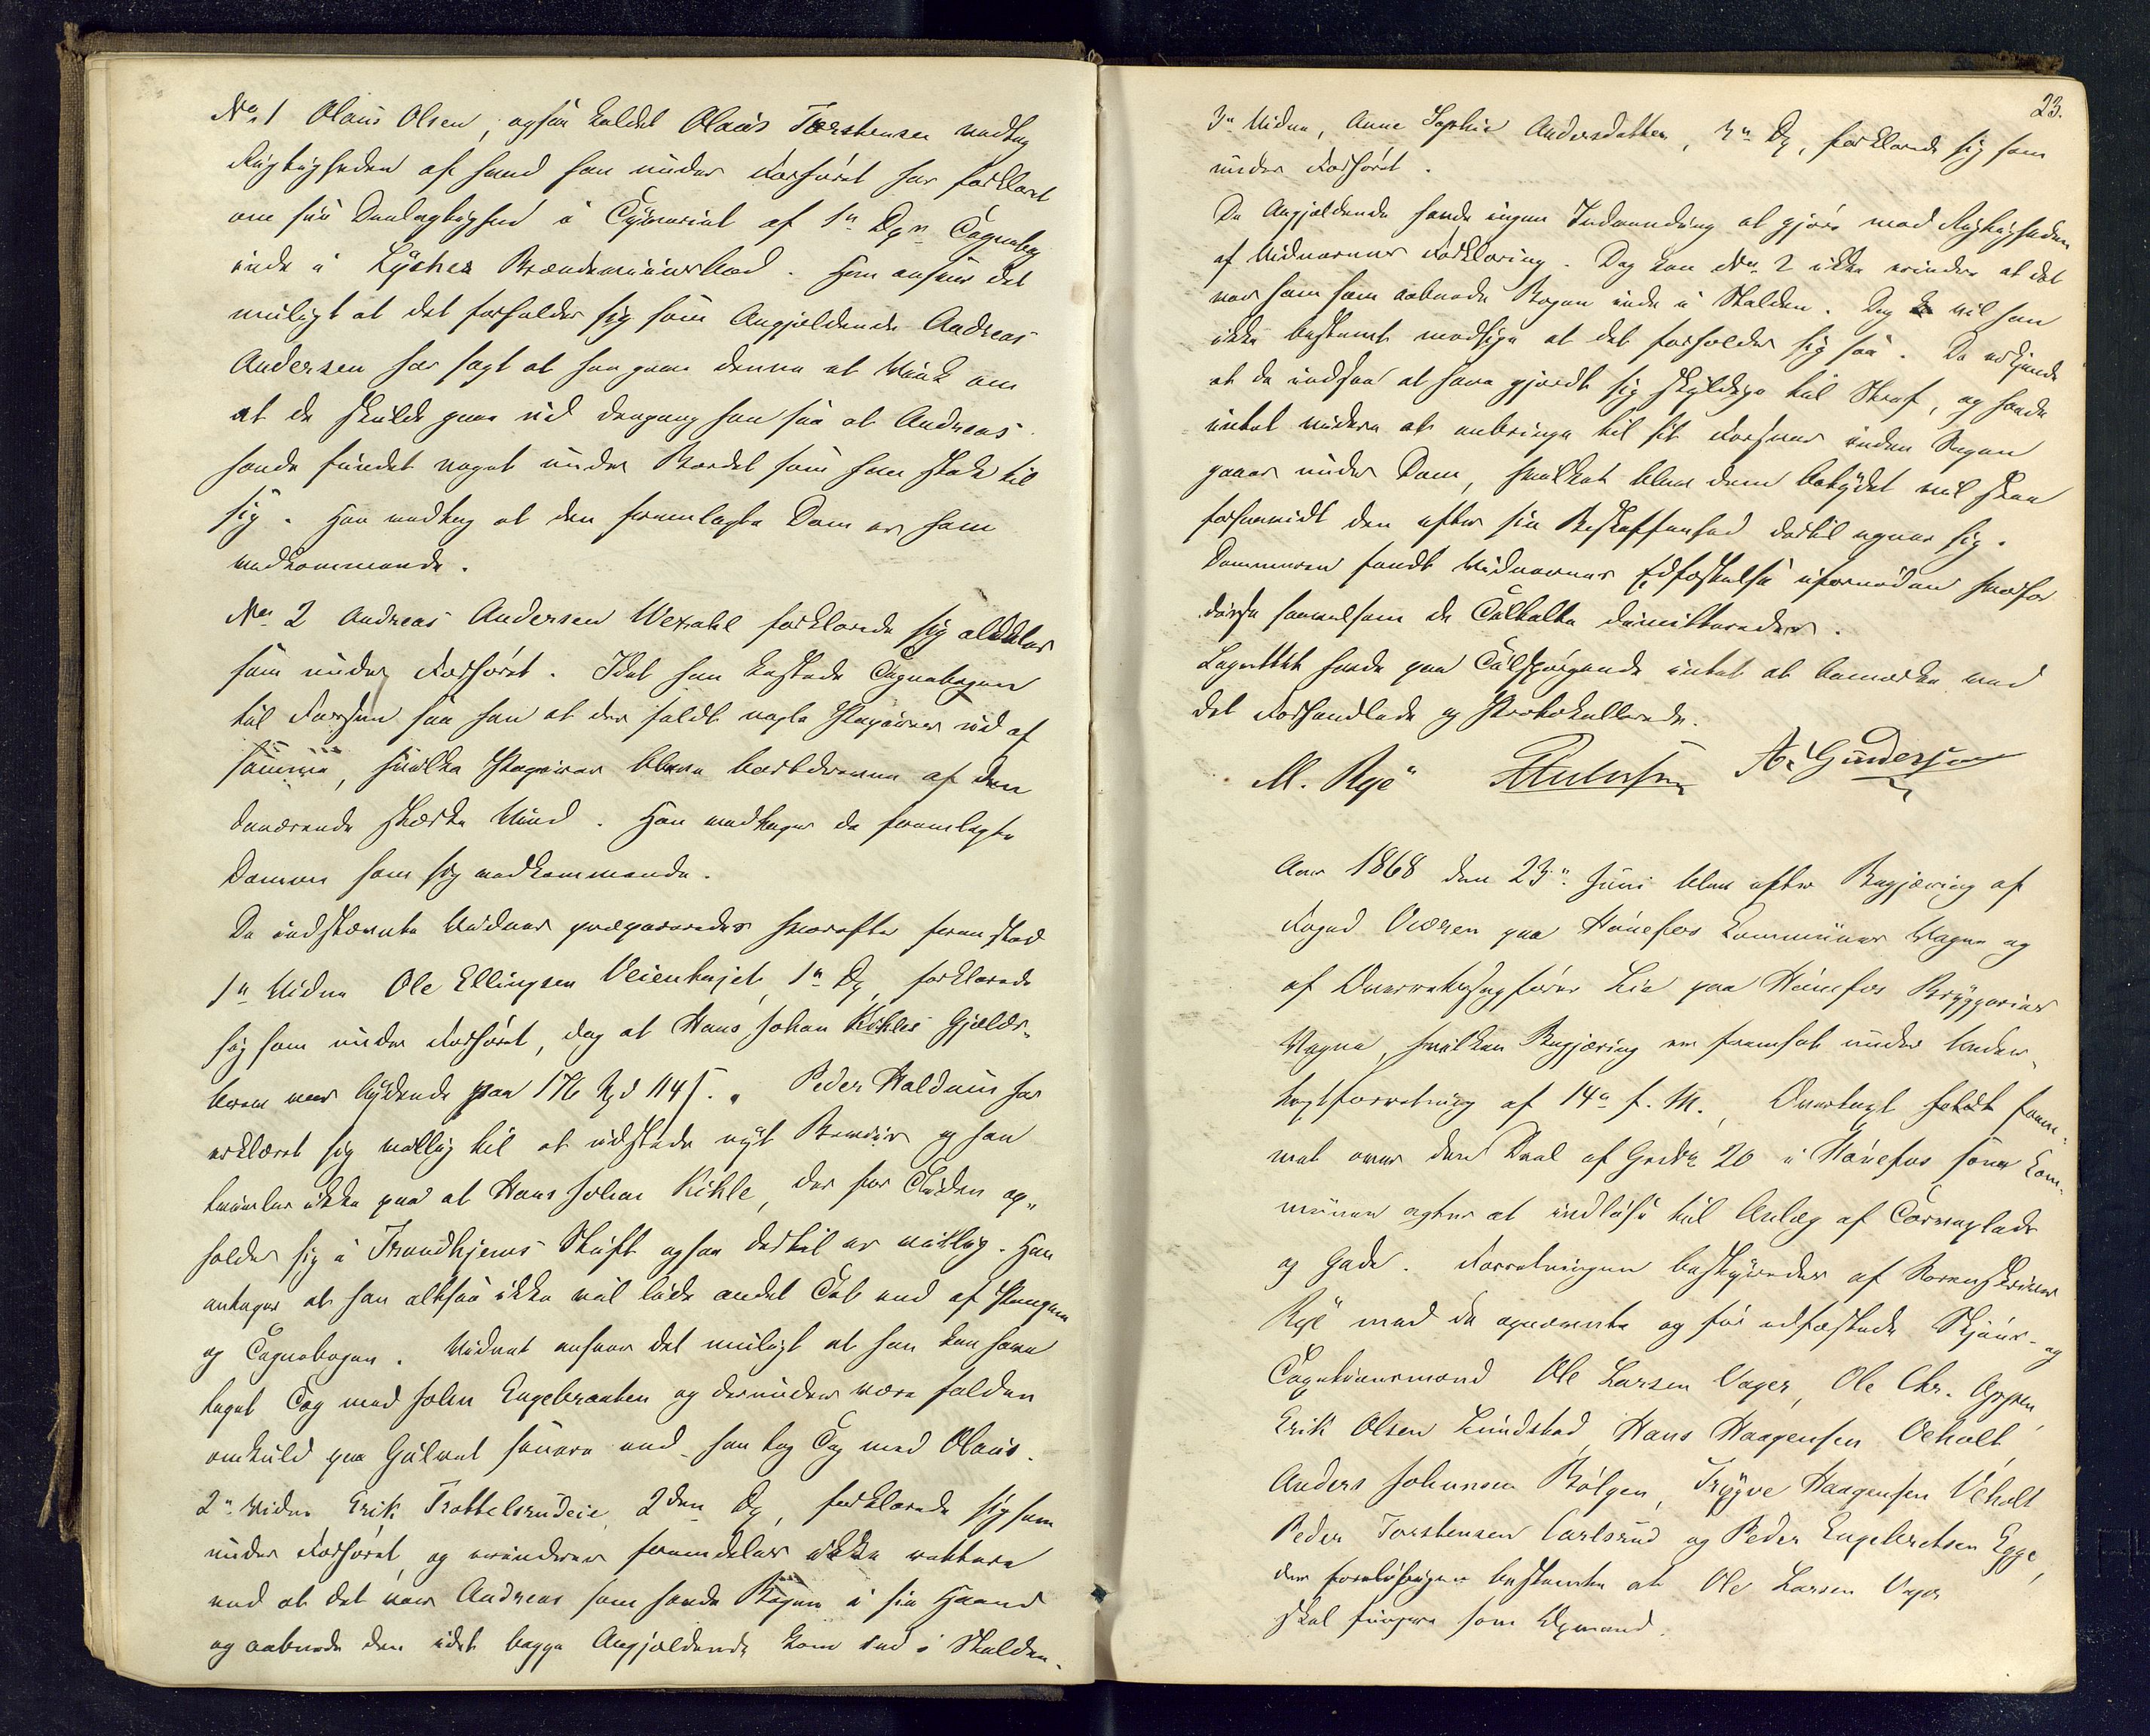 No 1 Olaus Olsen, ogsaa kaldet Olaus Torstensen vedtog
Rigtigheden af hvad han under Forhøret har forklaret
om sin Deelagtighed i Tyveriet af 1ste Dps Tegnebog
inde i Lyches Brændeviinsbod. Han ansaae det
muligt at det forholder sig som Angjældende Andreas
Andersen har sagt at han gav denne et Vink om
at de skulde gaae ud dengang han saa at Andreas
havde fundet noget under Bordet som han stak til
sig. Han vedtog at den fremlagte Dom er ham
vedkommende.
No 2 Andreas Andersen Wexahl forklarede sig aldeles
som under Forhøret. Idet han kastede Tegnebogen
til Fossen saa han at der faldt nogle Papirer ud af
samme, hvilke Papirer bleve bortdrevne af den
daværende stærke Vind. Han vedtager de fremlagte
Domme som sig vedkommende.
De indstævnte Vidner præpareredes hvorefter fremstod
1ste Vidne Ole Ellingsen Veienhajet, 1ste Dp, forklarede
sig som under Forhøret, dog at Hans Johan Kihles Gjælds-
brev var lydende paa 176 Spd 114 s. Peder Haldum har
erklæret sig villig til at udstede nyt Beviis og han
tvivler ikke paa at Hans Johan Kihle, der for Tiden op-
holder sig i Trondhjems Stift ogsaa dertil er villig. Han
antager at han altsaa ikke vil lide andet Tab end af Pengene
og Tegnebogen. Vidnet ansaae det muligt at han kan have
taget Tag med John Engebraaten og derunder være falden
omkuld paa Gulvet senere end han tog Tag med Olaus.
2det Vidne Erik Trottelsrudeie, 2den Dp, forklarede sig som
under Forhøret og erindrer fremdeles ikke rettere
end at det var Andreas som havde Bogen i sin Haand
og aabnede den idet begge Angjældende kom ind i Stalden.
23.
3de Vidne, Anne Sophie Andersdatter, 3de Dp, forklarede sig som
under Forhøret.
De Angjældende havde ingen Indvending at gjøre mod Rigtigheden
af Vidnernes Forklaring. Dog kan No 2 ikke erindre at det
var ham som aabnede Bogen inde i Stalden. Dog vil han
ikke bestemt modsige at det forholder sig saa. De erkjende
at de indsaae at have gjordt sig skyldige til Straf, og havde
intet videre at anbringe til sit Forsvar inden Sagen
gaaer under Dom, hvilket blev dem betydet vil skee
forsaavidt den efter sin Beskaffenhed dertil egner sig.
Dommeren fandt Vidnernes Edfæstelse ufornøden hvorfor
disse saavelsom de Tiltalte dimitteredes.
Lagrettet havde paa Tilspørgende intet at bemærke ved
det Forhandlede og Protokollerede.
M. Rye A. Gundersen
Aar 1868 den 23de Juni blev efter Begjæring af
Foged Owren paa Hønefos Kommunes Vegne og
af Overretssagfører Lie paa Hønefos Bryggeries
Vegne, hvilken Begjæring er fremsat under Under-
tagtforretning af 14de f. M., Overtagt foldt frem-
met over den Deel af Grd No 20 i Hønefos som Kom-
munen agter at indløse til Anlæg af Torveplads
og Gade. Forretningen bestyredes af Sorenskriver
Rye med de opnævnte og før edfæstede Skjøns- og
Tagstionsmænd Ole Larsen Vager, Ole Chr. Oppen,
Erik Olsen Lundstad, Hans Haagensen Veholt,
Anders Johannsen Bølgen, Trygve Haagensen Veholt
Peder Torstensen Carlsrud og Peder Engebretsen Egge,
der foreløbigen bestemte at Ole Larsen Vager
skal fungere som Opmand.